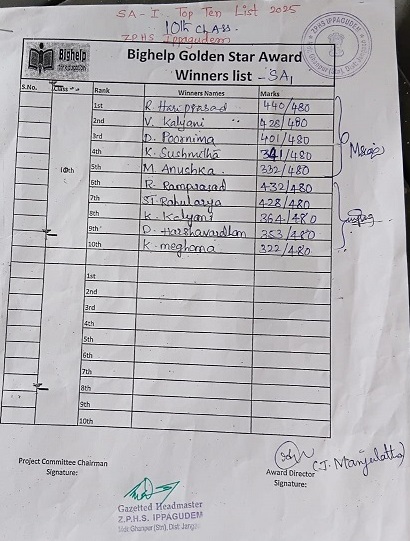 SA-I Top Ten List 2025
10th class.
ZPHS Ippagudem
Bighelp
Bighelp Golden Star Award
Winners list - SA1
Z.P.H.S IPPAGUDEM
S.No. Class Rank Winners Names Marks
1st R. Hari prasad 440/480
2nd V. Kalyani 428/480
3rd D. Poornima 401/480
4th K. Sushmitha 341/480
5th M. Anushka. 332/480
10th
6th R. Ramprasad 432/480
7th ST. Rahularya 428/480
8th K. Kalyani 364/480
9th D. Harshavardhan 353/480
10th K. meghana 322/480
1st
2nd
3rd
4th
5th
6th
7th
8th
9th
10th
Project Committee Chairman
Signature:
Award Director
Signature:
(J. Manjulatha)
Gazetted Headmaster
Z.P.H.S. IPPAGUDEM
Ghanpur (Stn), Dist: Jangaon